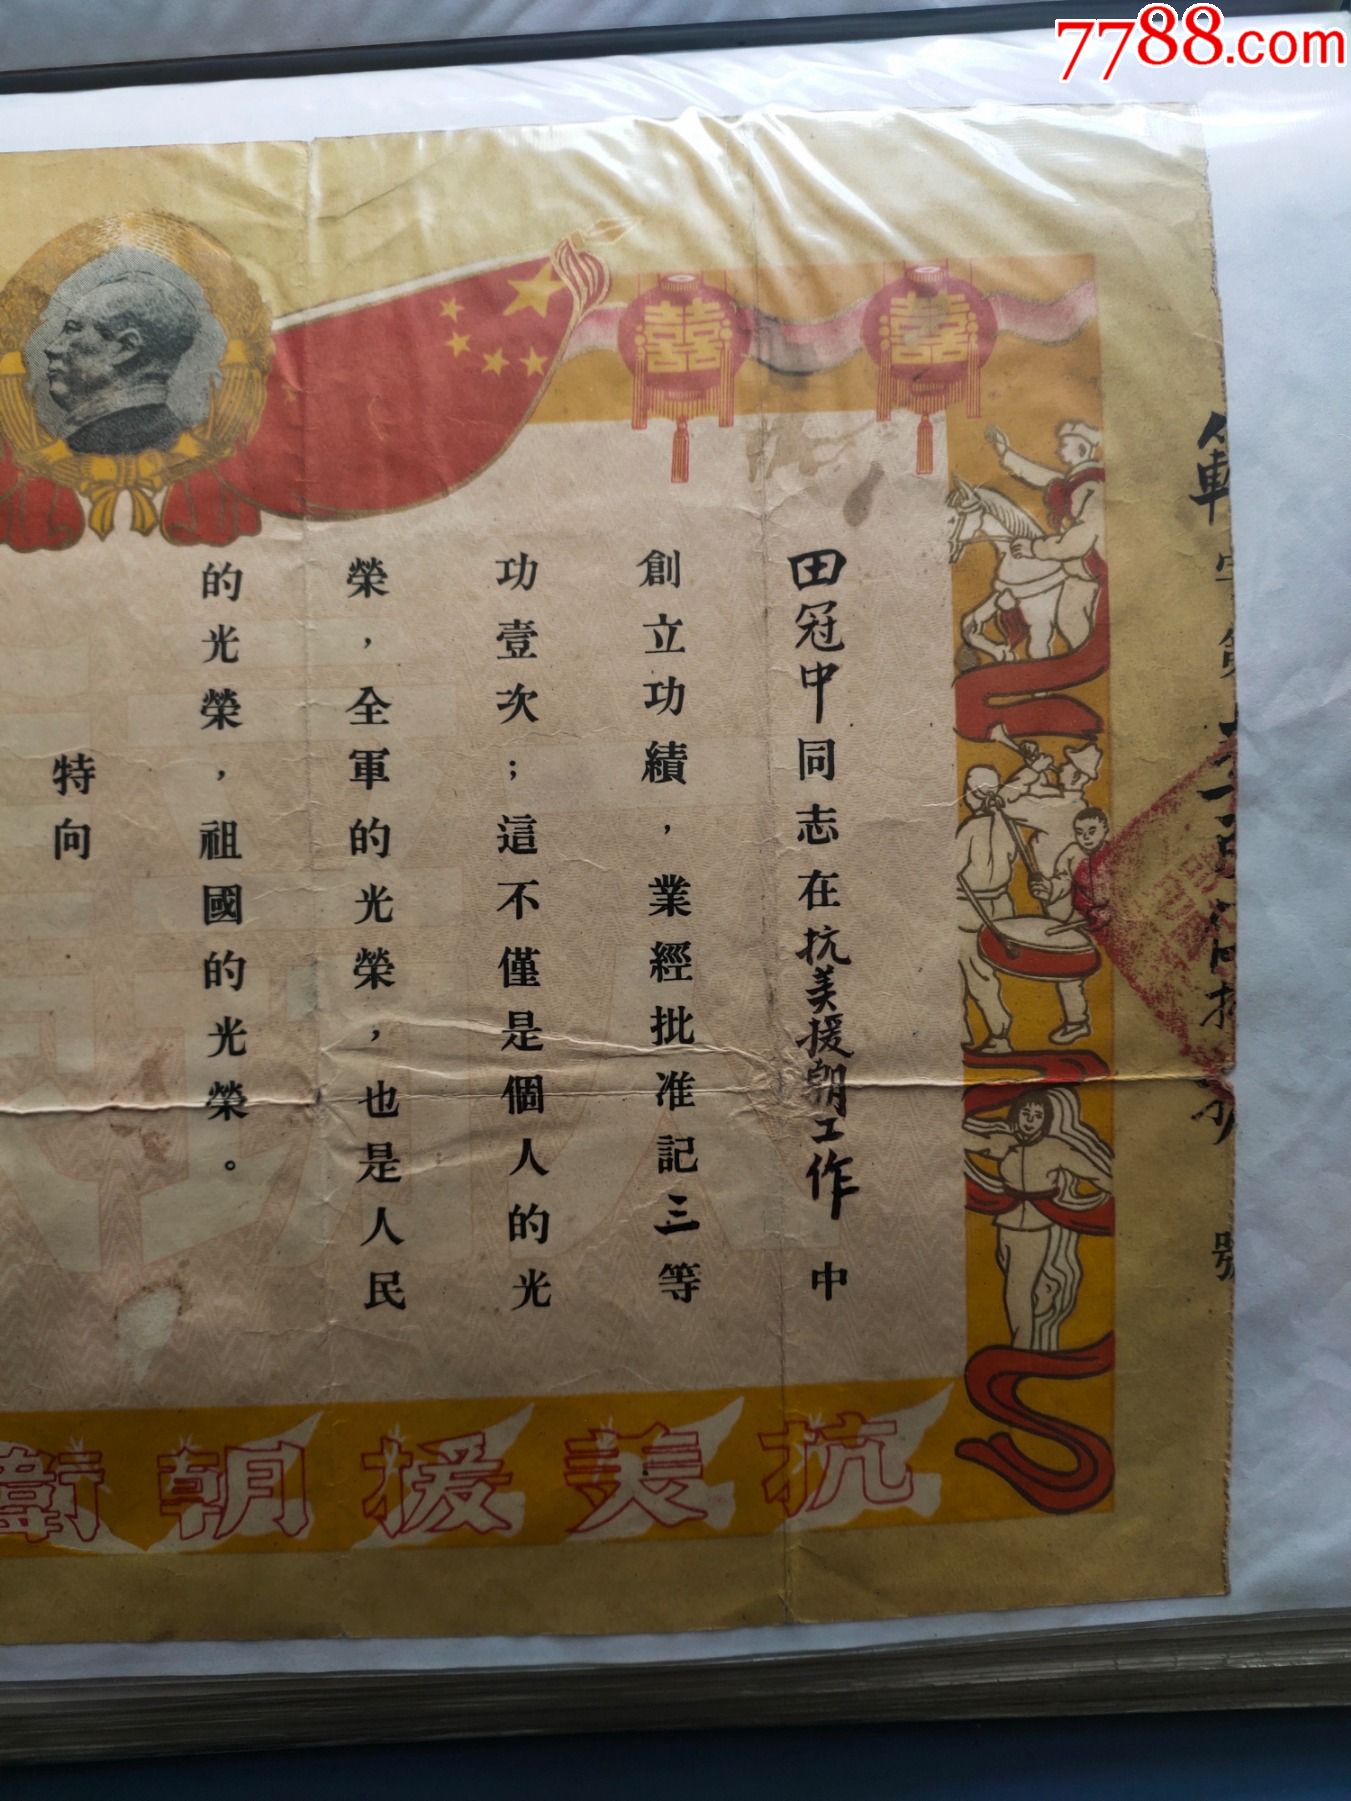 7788.com
田冠中同志在抗美援朝工作中
創立功績，業經批准記三等
功壹次；這不僅是個人的光
榮，全軍的光榮，也是人民
的光榮，祖國的光榮。
特向
抗美援朝衛
囍 囍